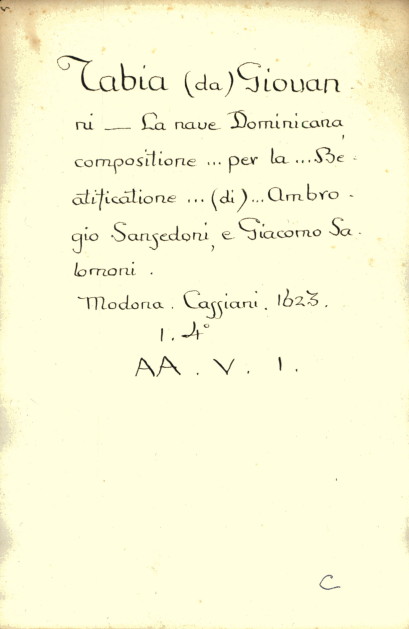 Tabia (da) Giovan-
ni — La nave Dominicana,
compositione ... per la ... Be-
atificatione ... (di) ... Ambro-
gio Sansedoni, e Giacomo Sa-
lomoni.
Modona. Cassiani. 1623.
1. 4°
AA. V. 1.
C